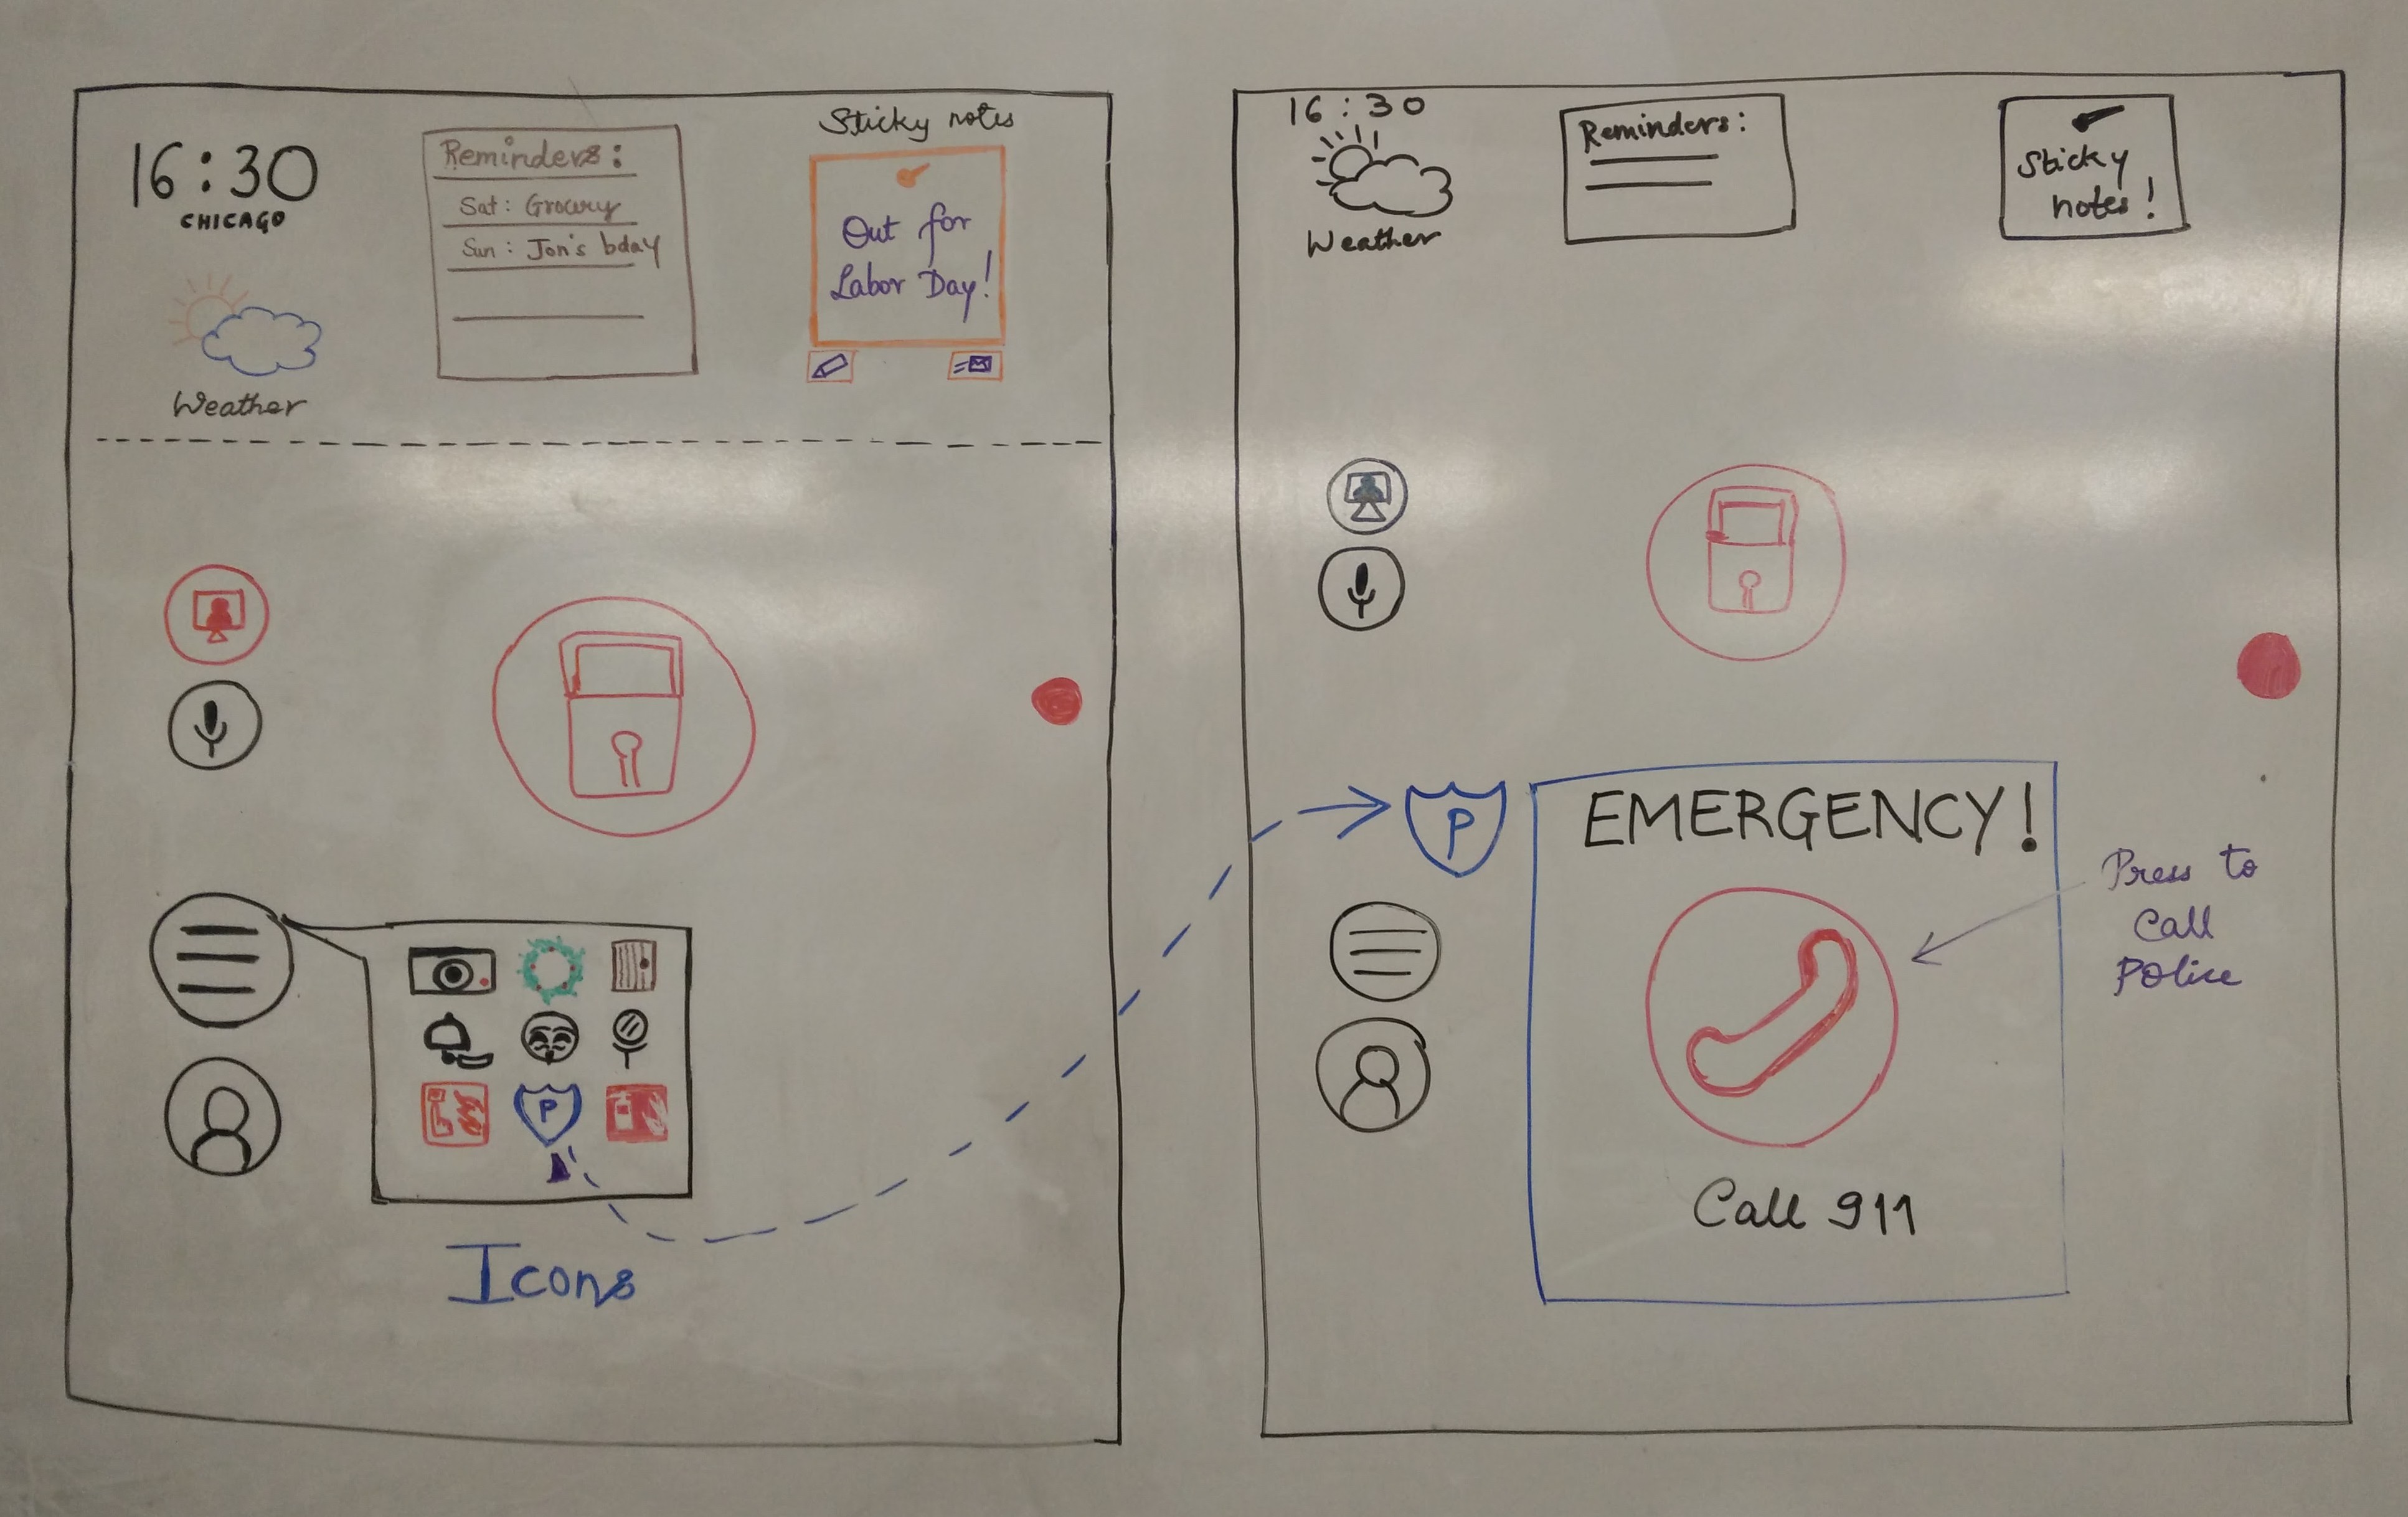 16:30
CHICAGO
Weather
Reminders:
Sat: Grocery
Sun: Jon's bday
Sticky notes
Out for
Labor Day!
P
Icons
16:30
Weather
Reminders:
Sticky
notes!
P
EMERGENCY!
Call 911
Press to
Call
Police